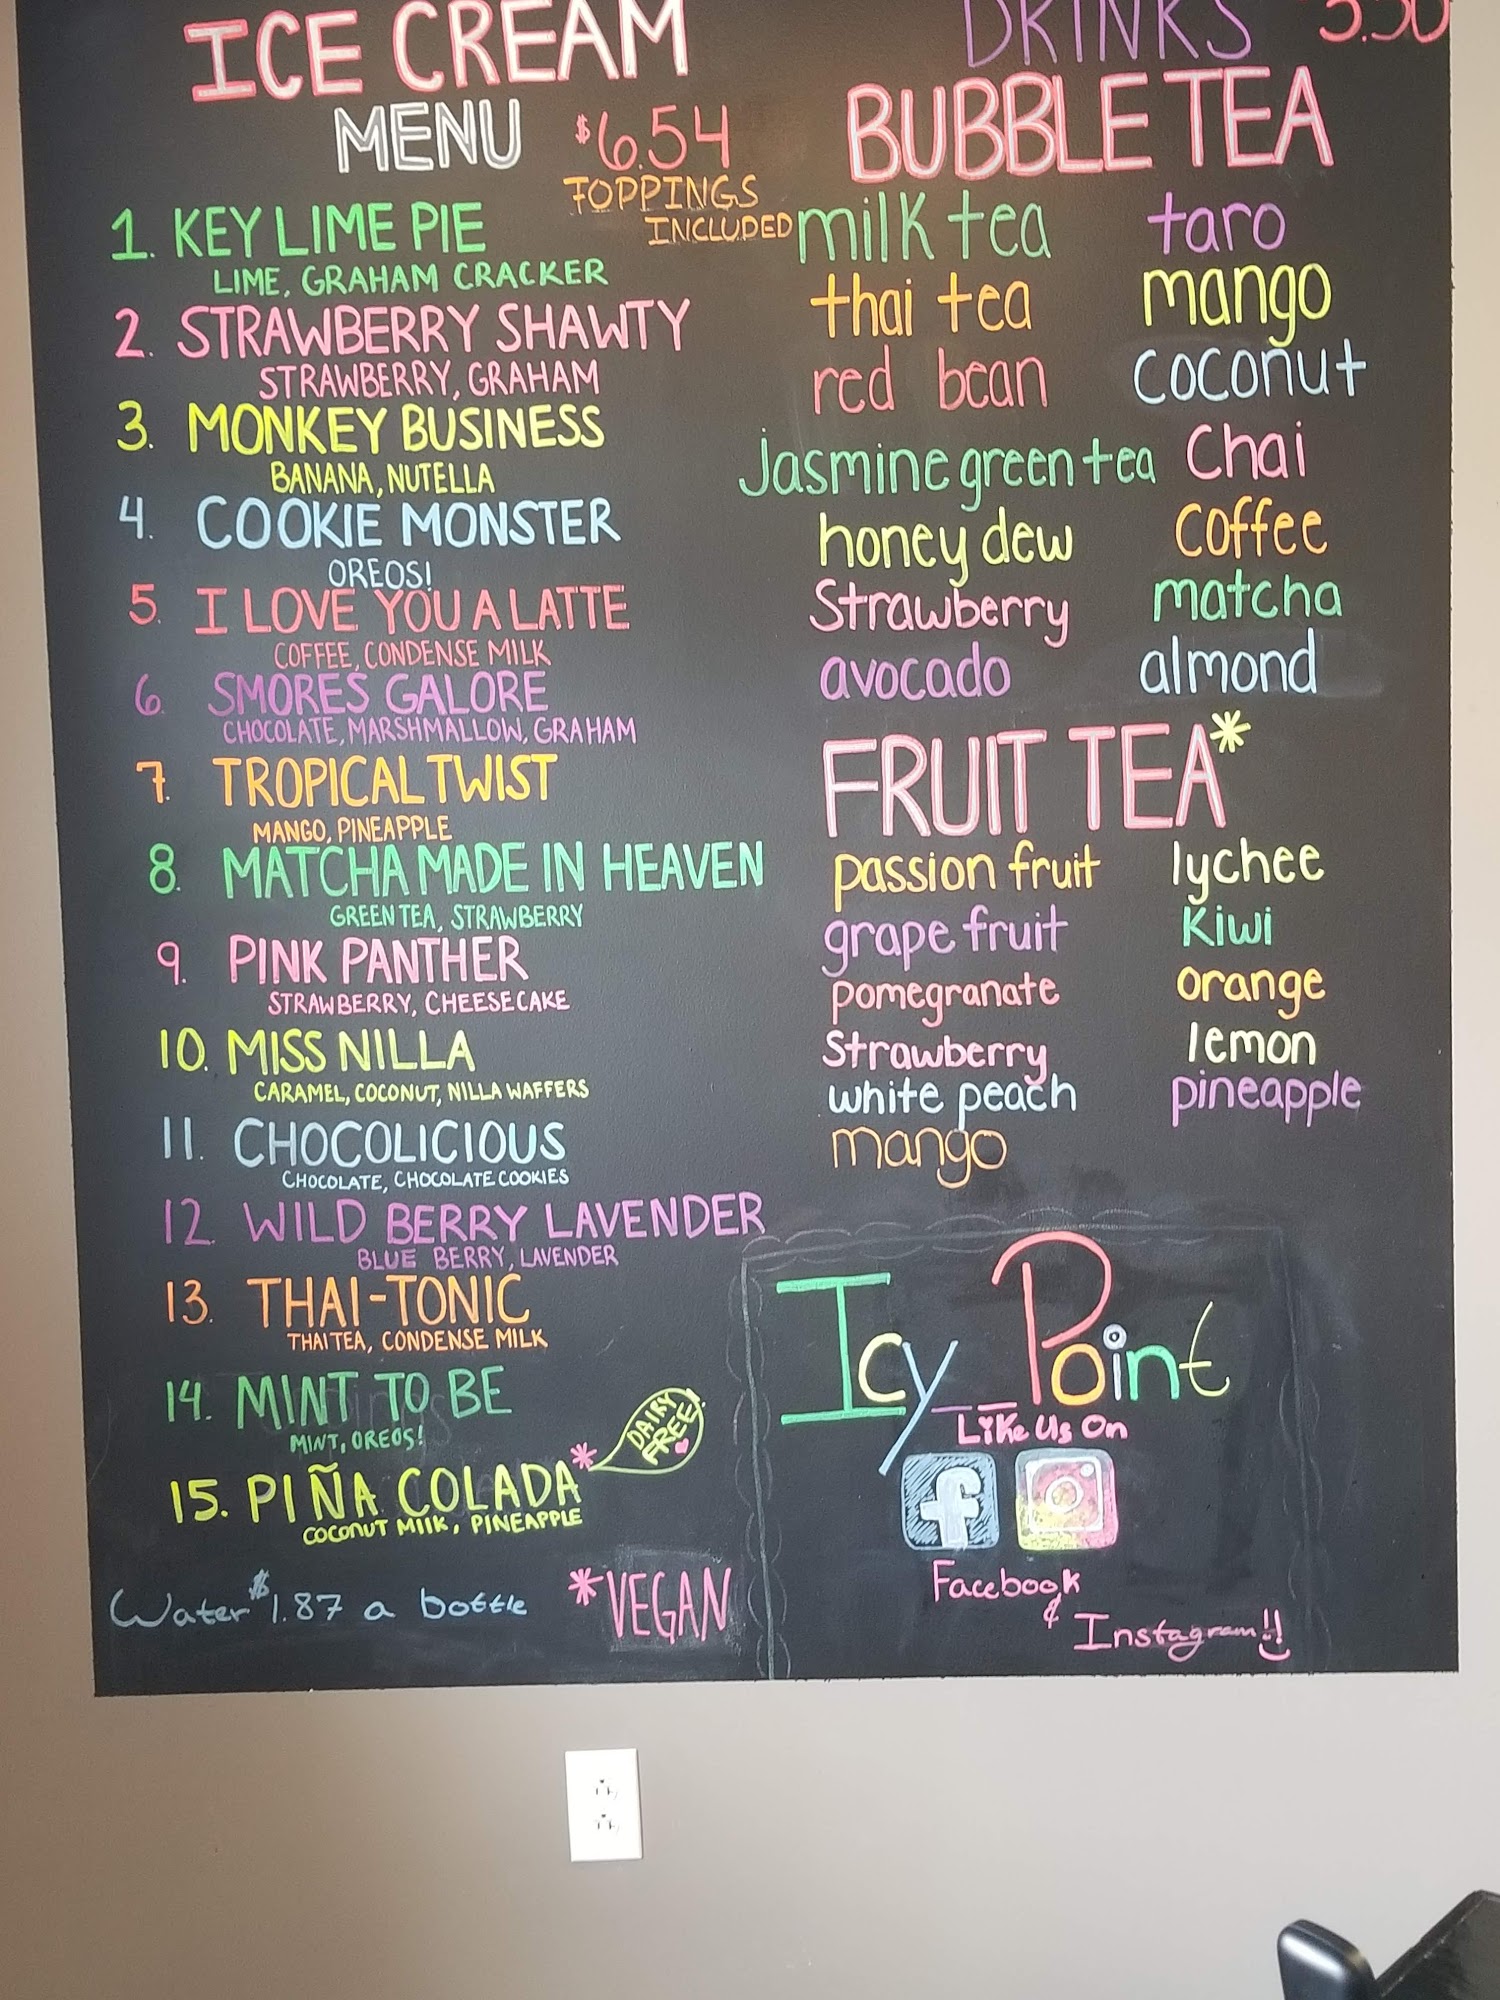 ICE CREAM
MENU
$6.54
TOPPINGS
INCLUDED
1. KEY LIME PIE
LIME, GRAHAM CRACKER
2. STRAWBERRY SHAWTY
STRAWBERRY, GRAHAM
3. MONKEY BUSINESS
BANANA, NUTELLA
4. COOKIE MONSTER
OREOS!
5. I LOVE YOU A LATTE
COFFEE, CONDENSE MILK
6. SMORES GALORE
CHOCOLATE, MARSHMALLOW, GRAHAM
7. TROPICAL TWIST
MANGO, PINEAPPLE
8. MATCHA MADE IN HEAVEN
GREEN TEA, STRAWBERRY
9. PINK PANTHER
STRAWBERRY, CHEESECAKE
10. MISS NILLA
CARAMEL, COCONUT, NILLA WAFFERS
11. CHOCOLICIOUS
CHOCOLATE, CHOCOLATE COOKIES
12. WILD BERRY LAVENDER
BLUE BERRY, LAVENDER
13. THAI-TONIC
THAI TEA, CONDENSE MILK
14. MINT TO BE
MINT, OREOS!
DAIRY
FREE!
15. PIÑA COLADA*
COCONUT MIlK, PINEAPPLE
Water $1.87 a bottle
*VEGAN
DRINKS 5.50
BUBBLE TEA
milk tea taro
thai tea mango
red bean coconut
Jasmine green tea Chai
honey dew Coffee
Strawberry matcha
avocado almond
FRUIT TEA*
passion fruit lychee
grape fruit Kiwi
pomegranate orange
Strawberry lemon
white peach pineapple
mango
Icy Point
Like Us On
f
Facebook
&
Instagram!!